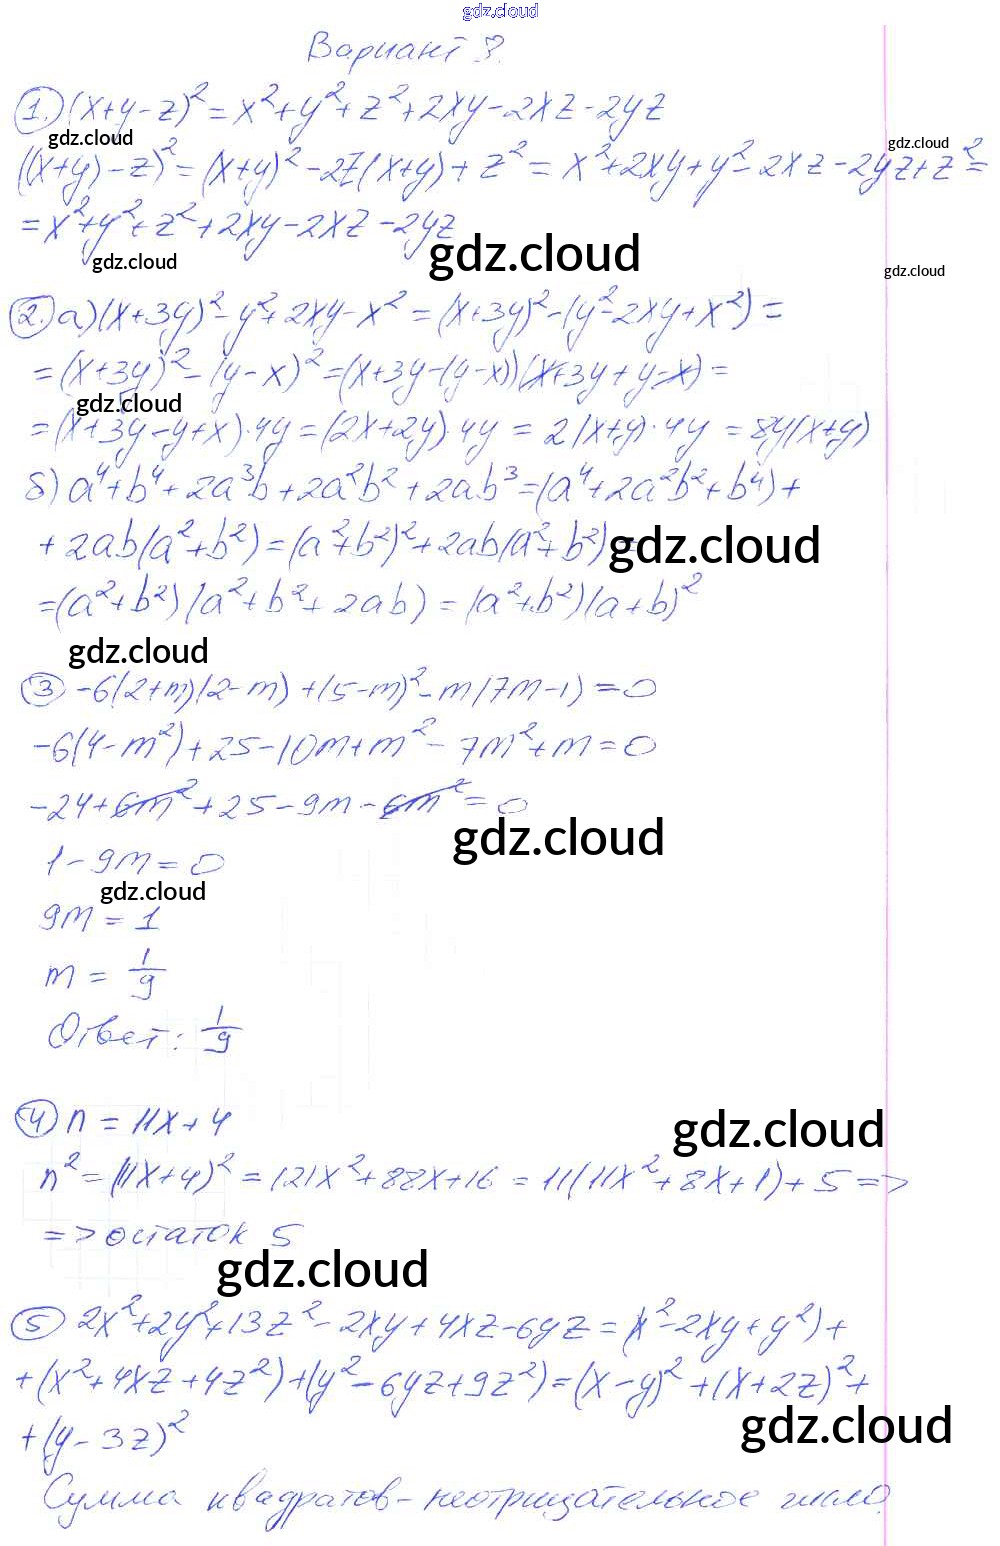 gdz.cloud
Вариант 3.
1. (x+y-z)² = x²+y²+z²+2xy-2xz-2yz
gdz.cloud
gdz.cloud
((x+y)-z)² = (x+y)²-2z(x+y)+z² = x²+2xy+y²-2xz-2yz+z² =
= x²+y²+z²+2xy-2xz-2yz
gdz.cloud
gdz.cloud
gdz.cloud
2. а) (x+3y)²-y²+2xy-x² = (x+3y)²-(y²-2xy+x²) =
= (x+3y)²-(y-x)² = (x+3y-(y-x))(x+3y+y-x) =
gdz.cloud
= (x+3y-y+x)·4y = (2x+2y)·4y = 2(x+y)·4y = 8y(x+y)
б) a⁴+b⁴+2a³b+2a²b²+2ab³ = (a⁴+2a²b²+b⁴)+
+2ab(a²+b²) = (a²+b²)²+2ab(a²+b²) =
gdz.cloud
= (a²+b²)(a²+b²+2ab) = (a²+b²)(a+b)²
gdz.cloud
3 -6(2+m)(2-m)+(5-m)²-m(7m-1) = 0
-6(4-m²)+25-10m+m²-7m²+m = 0
-24+6m²+25-9m-6m² = 0
gdz.cloud
1-9m = 0
gdz.cloud
9m = 1
m = 1/9
Ответ: 1/9
4 n = 11x+4
gdz.cloud
n² = (11x+4)² = 121x²+88x+16 = 11(11x²+8x+1)+5 =>
=> остаток 5
gdz.cloud
5 2x²+2y²+13z²-2xy+4xz-6yz = (x²-2xy+y²)+
+(x²+4xz+4z²)+(y²-6yz+9z²) = (x-y)²+(x+2z)²+
gdz.cloud
+(y-3z)²
Сумма квадратов - неотрицательное число.